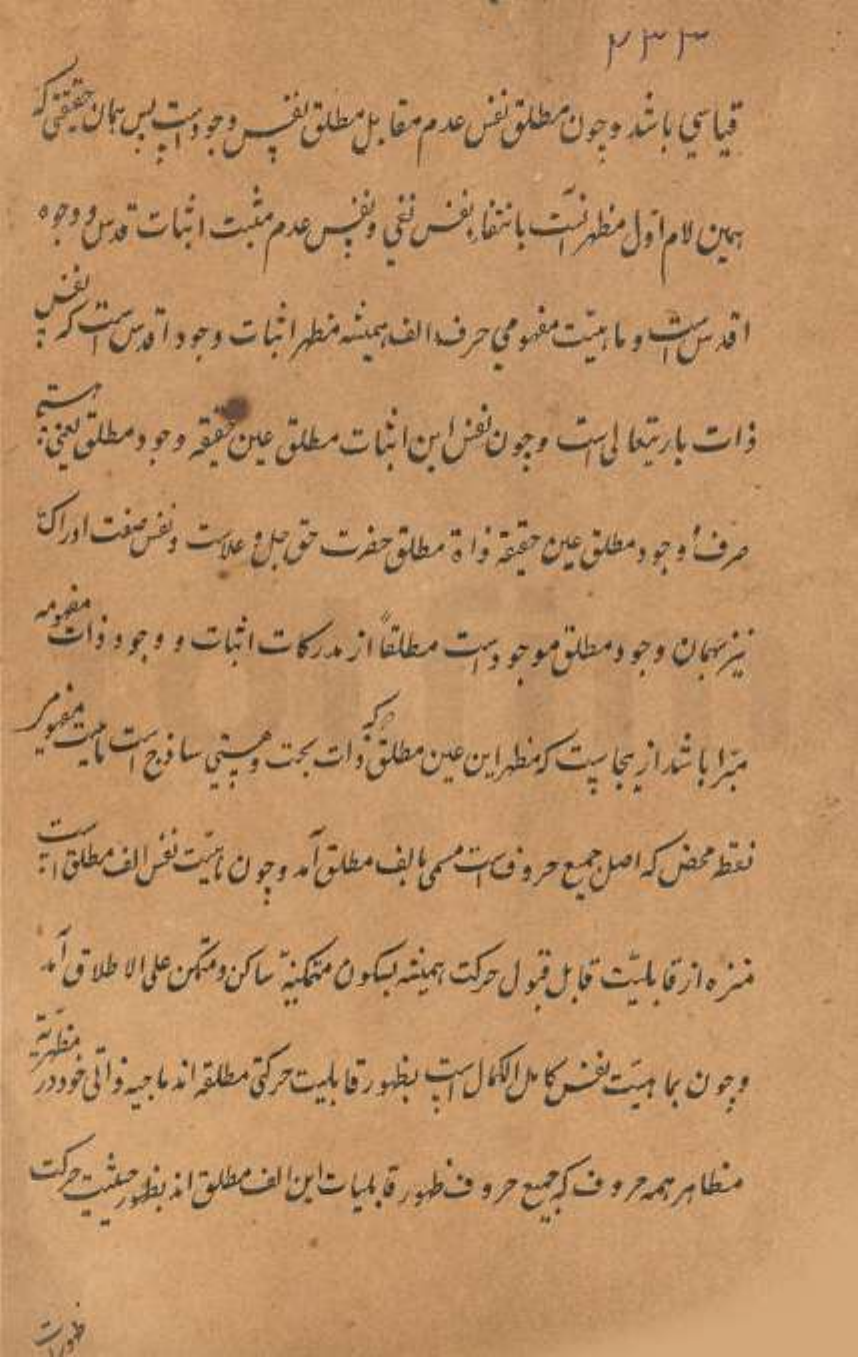 ۲۳۳
قیاسي باشد وچون مطلق نفس عدم مقابل مطلق نفس وجود است پس همان حقیقتی که
همین لام اول مظهر آنست بانتفاء نفس نفي ونفس عدم مثبت اثبات قدس ووجود
اقدس است وماهیّت مفهومي حرف الف همیشه مظهر اثبات وجود اقدس است که نفس
ذات باریتعالی است وچون نفس این اثبات مطلق عین حقیقه وجود مطلق یعني هستي
صرف وجود مطلق عین حقیقه ذاة مطلق حضرت حق جل وعلاست ونفس صفت ادراکة
نیز همان وجود مطلق موجود است مطلقاً از مدرکات اثبات و وجود ذات مفهومه
مبّرا باشد ازینجاست که مظهر این عین مطلق که ذات بحت وهستي ساذج است ماهیت مفهومي
نقطه محض که اصل جمیع حروفست مسمی بالف مطلق آمد وچون ماهیّت نفس الف مطلق است
منزه از قابلیّت قابل قبول حرکت همیشه بسکون متمکنیّه ساکن ومتمکن علی الاطلاق آمد
وچون بماهیّت نفس کامل الکمال است بظهور قابلیت حرکتی مطلقه اندماجیه ذاتی خود در مظهریّة
مظاهر همه حروف که جمیع حروف ظهور قابلیات این الف مطلق اند بظهور حیثیت حرکت
ظهورات